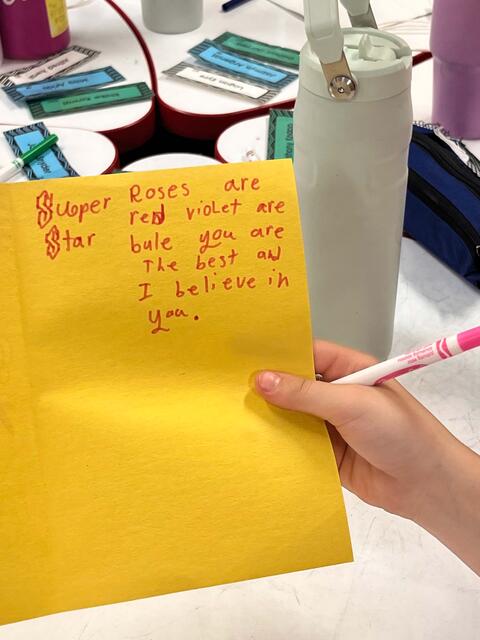 Super Roses are
red violet are
Star bule you are
The best and
I believe in
you.